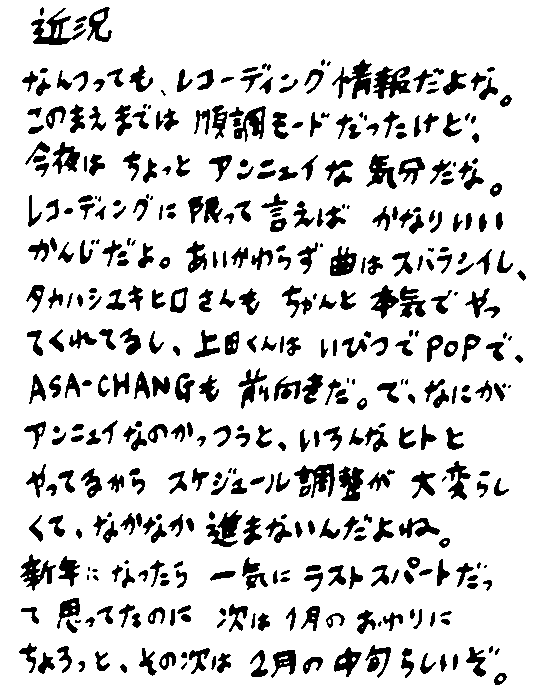 近況
なんつっても、レコーディング情報だよな。
このまえまでは 順調モードだったけど、
今夜は ちょっと アンニュイな 気分だな。
レコーディングに 限って 言えば かなりいい
かんじだよ。あいかわらず 曲は スバラシイし、
タカハシユキヒロさんも ちゃんと 本気で やっ
てくれてるし、上田くんは いびつで POPで、
ASA-CHANGも 前向きだ。で、なにが
アンニュイなのかっつうと、いろんなヒトと
やってるから スケジュール調整が 大変らし
くて、なかなか 進まないんだよね。
新年に なったら 一気に ラストスパートだっ
て 思ってたのに 次は 1月の おわりに
ちょろっと、その次は 2月の 中旬らしいぞ。